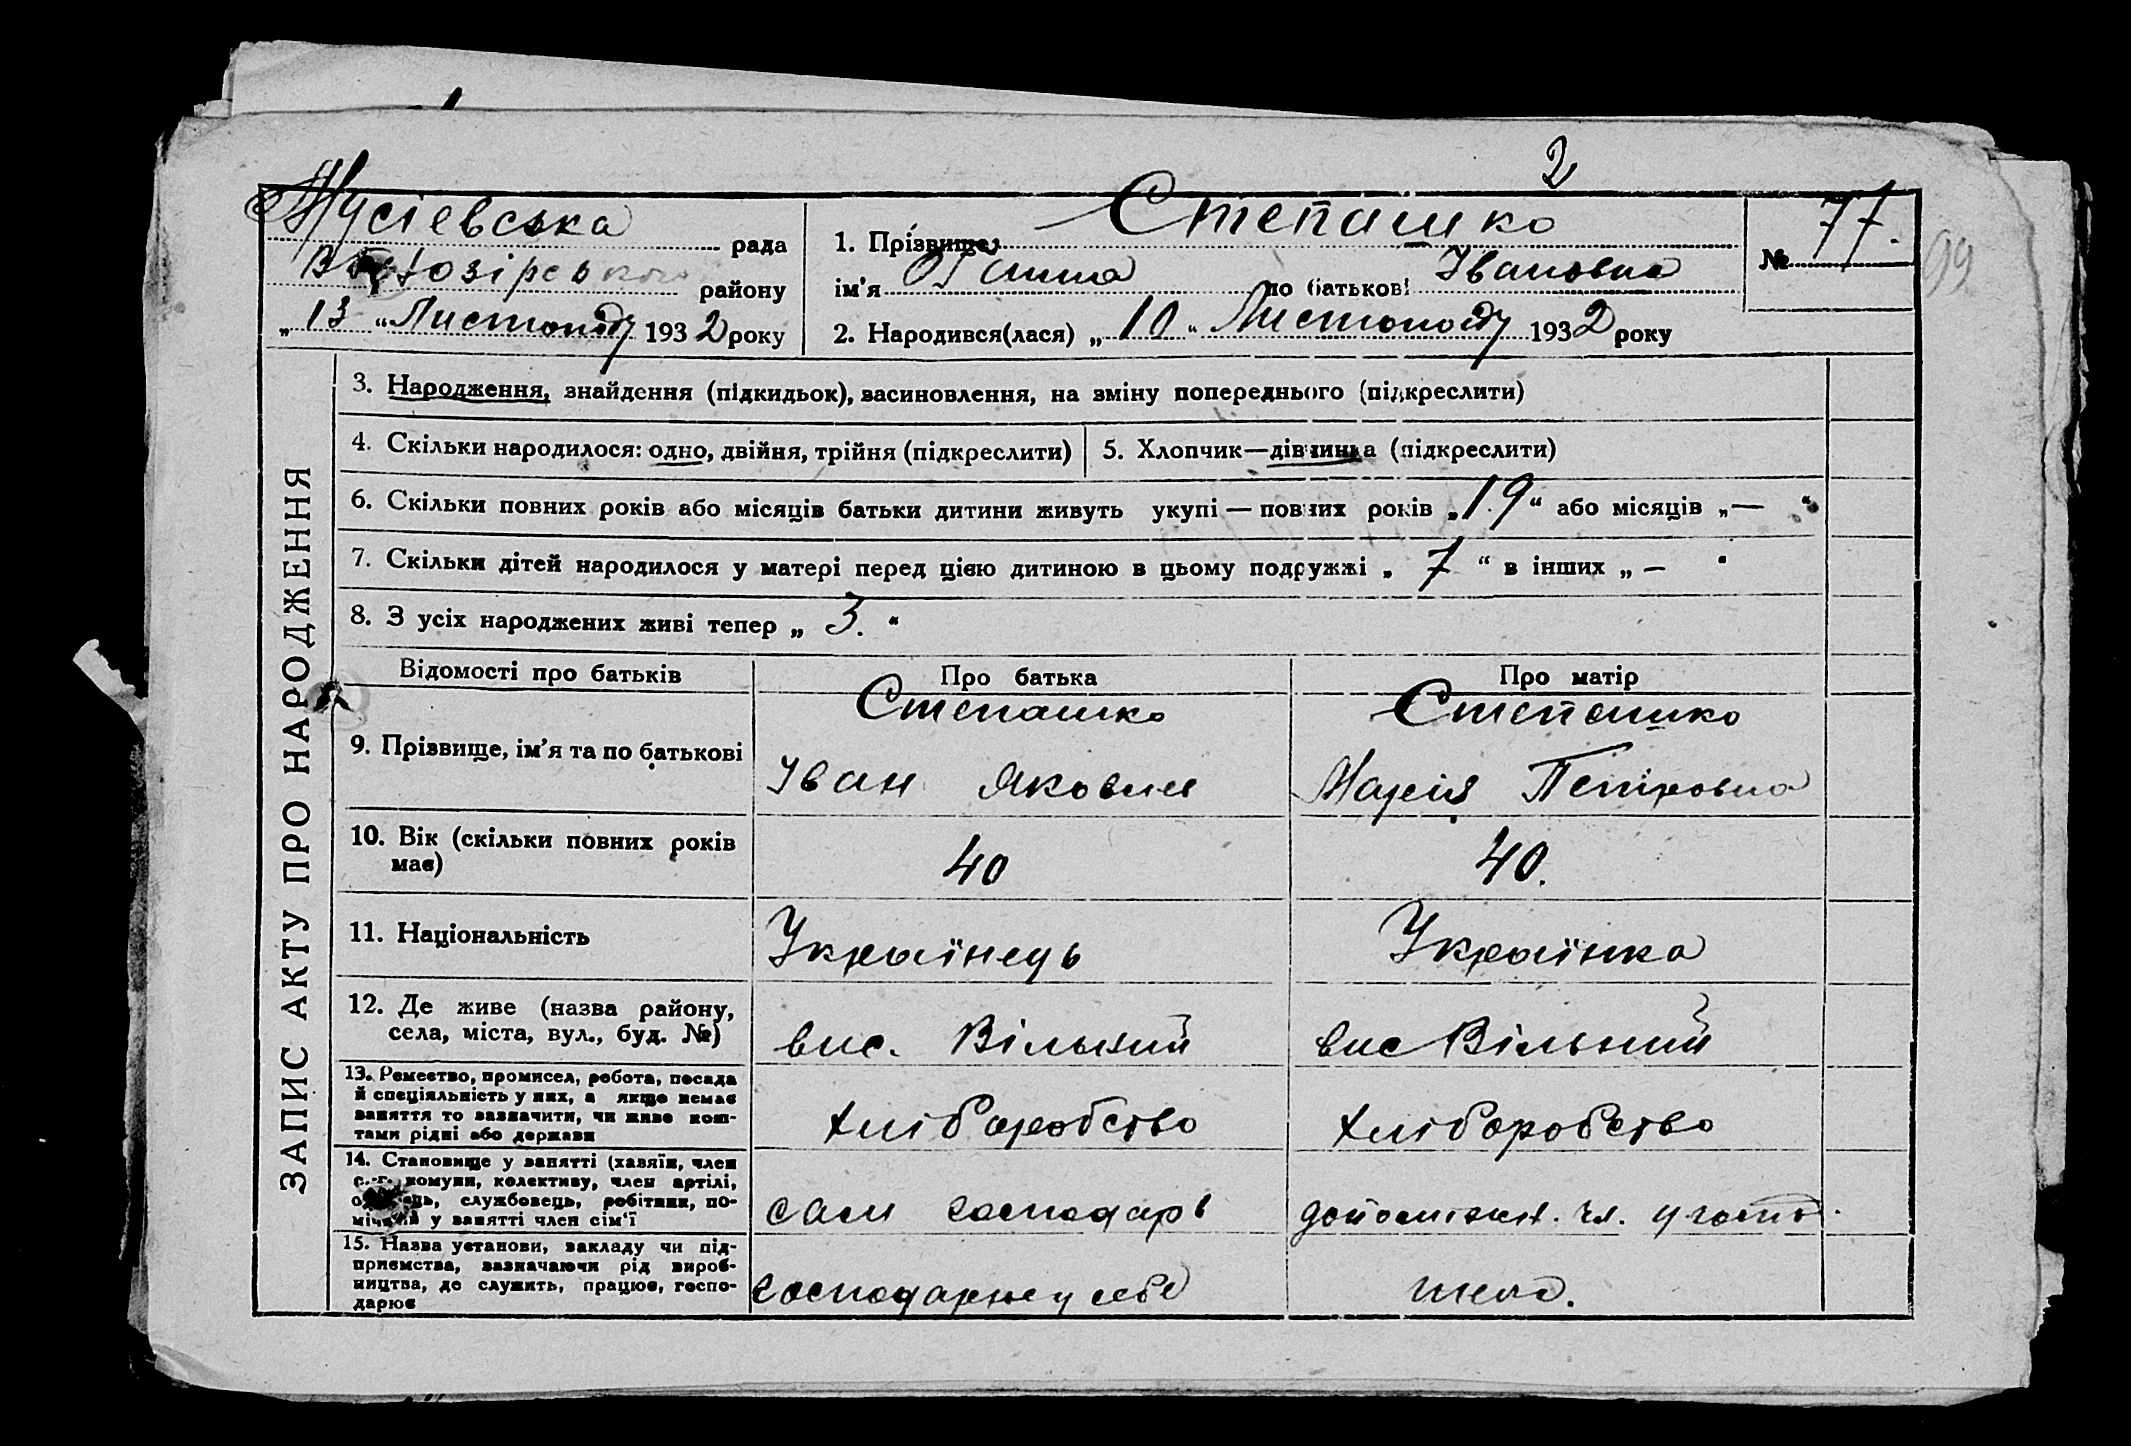 2
Мусіевська рада
району
„ 13 “ Листопаду 1932 року
1. Прізвище Степашко
ім'я Ганна по батькові Івановна
2. Народився(лася) „ 10 “ Листопаду 1932 року
№ 77.
99
ЗАПИС АКТУ ПРО НАРОДЖЕННЯ
3. Народження, знайдення (підкидьок), васиновлення, на зміну попереднього (підкреслити)
4. Скільки народилося: одно, двійня, трійня (підкреслити)
5. Хлопчик—дівчинка (підкреслити)
6. Скільки повних років або місяців батьки дитини живуть укупі — повних років „ 19 “ або місяців „ — “
7. Скільки дітей народилося у матері перед цією дитиною в цьому подружжі „ 7 “ в інших „ — “
8. З усіх народжених живі тепер „ 3. “
Відомості про батьків Про батька Про матір
9. Прізвище, ім'я та по батькові
Степашко
Іван Якович
Степашко
Марія Петровна
10. Вік (скільки повних років має)
40
40.
11. Національність
Українець
Українка
12. Де живе (назва району,
села, міста, вул., буд. №)
вис. Вільний
вис Вільний
13. Ремество, промисел, робота, посада
й спеціяльність у них, а якщо немає
заняття то зазначити, чи живе кош-
тами рідні або держави
хліборобство
хліборобство
14. Становище у занятті (хазяїн, член
с.-г. комуни, колективу, член артілі,
службовець, робітник, по-
мічний у занятті член сім'ї
сам господарь
допоміжн. чл. у госп.
15. Назва установи, закладу чи під-
приємства, зазначаючи рід вироб-
ництва, де служить, працює, госпо-
дарює
господарює у себе